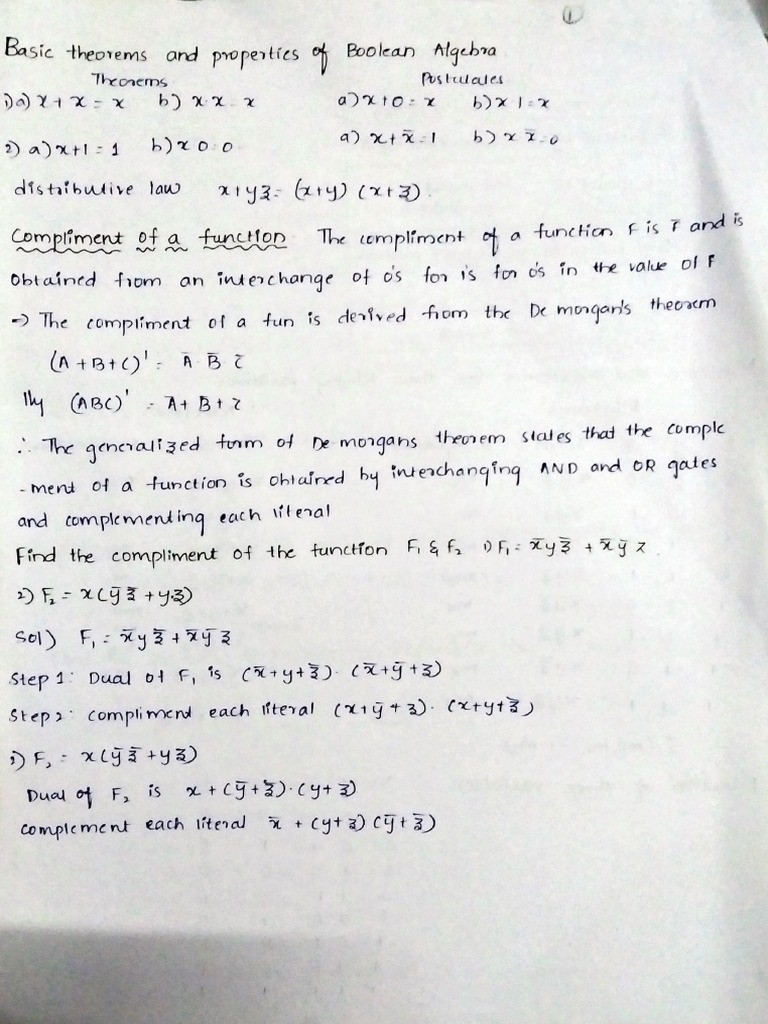 1
Basic theorems and properties of Boolean Algebra
Theorems Postulates
1) a) x + x = x b) x·x = x a) x+0 = x b) x·1 = x
2) a) x+1 = 1 b) x·0 = 0 a) x+x̄ = 1 b) x x̄ = 0
distributive law x+yz = (x+y) (x+z).
Compliment of a function The compliment of a function F is F̄ and is
obtained from an interchange of 0's for 1's for 0's in the value of F
=> The compliment of a fun is derived from the De morgan's theorem
(A+B+C)' = Ā·B̄·C̄
llly (ABC)' = Ā+B̄+C̄
∴ The generalized form of De morgans theorem states that the comple
-ment of a function is obtained by interchanging AND and OR gates
and complementing each literal
Find the compliment of the function F₁ & F₂ 1) F₁ = x̄yz̄ + x̄ȳz
2) F₂ = x(ȳz̄ + yz)
Sol) F₁ = x̄yz̄ + x̄ȳz
Step 1: Dual of F₁ is (x̄+y+z̄)·(x̄+ȳ+z)
Step 2: compliment each literal (x+ȳ+z)·(x+y+z̄)
2) F₂ = x(ȳz̄ + yz)
Dual of F₂ is x + (ȳ+z̄)·(y+z)
complement each literal x̄ + (y+z) (ȳ+z̄)